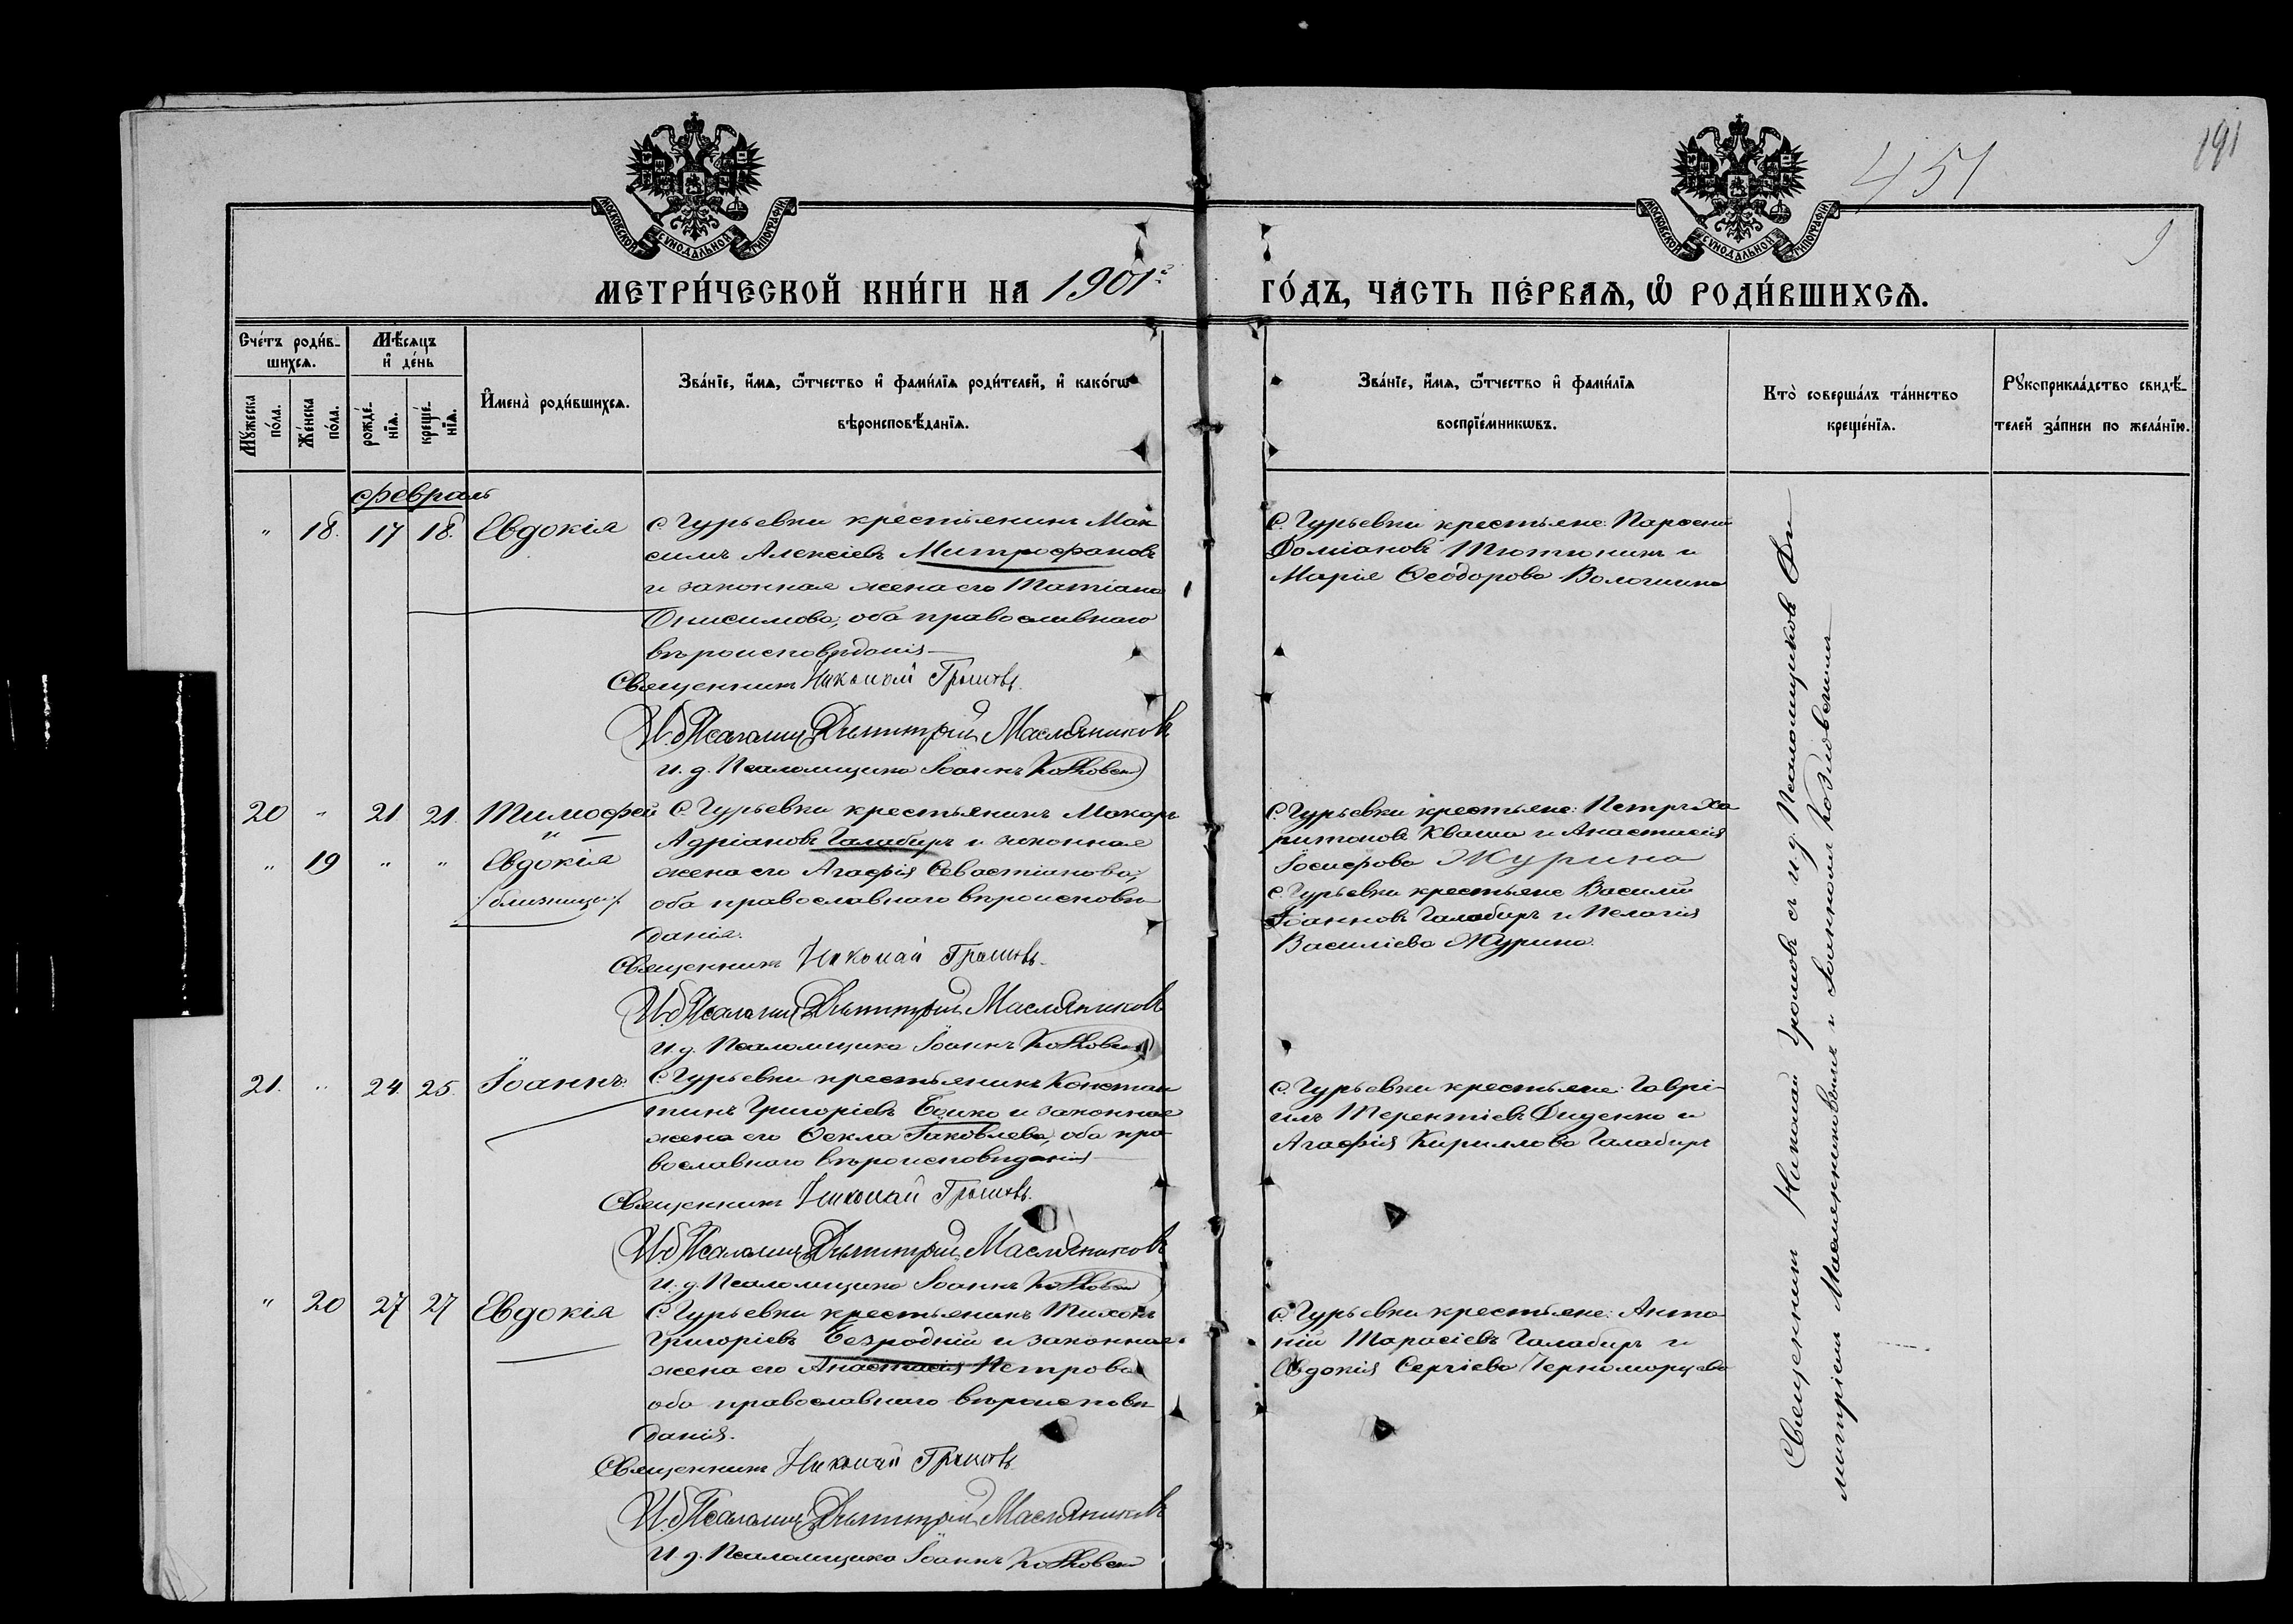 451
191
9
МОСКОВСКОЙ СѴНОДАЛЬНОЙ ТИПОГРАФІИ
МОСКОВСКОЙ СѴНОДАЛЬНОЙ ТИПОГРАФІИ
МЕТРИ́ЧЕСКОЙ КНИ́ГИ НА 1901 г
ГО́ДЪ, ЧА́СТЬ ПЕ́РВАѦ, Ѽ РОДИ́ВШИХСѦ.
Сче́тъ роди́в-
шихсѧ.
Мꙋ́жеска
по́ла.
Же́нска
по́ла.
Мѣ́сѧцъ
и҆ де́нь
рожде́-
нїѧ.
креще́-
нїѧ.
И҆мена̀ роди́вшихсѧ.
Зва́нїе, и҆́мѧ, ѻ҆́тчество и҆ фами́лїѧ роди́телей, и҆ како́гѡ
вѣроисповѣ́данїѧ.
Зва́нїе, и҆́мѧ, ѻ҆́тчество и҆ фами́лїѧ
воспрїе́мникѡвъ.
Кто̀ соверша́лъ та́инство
креще́нїѧ.
Рꙋкоприкла́дство свидѣ́-
телей за́писи по жела́нїю.
февраль
" 18. 17 18. Евдокія
С. Гурьевки крестьянинъ Мак
симъ Алексіевъ Митрофановъ
и законная жена его Татіана
Онисимова, оба православнаго
вѣроисповѣданія
Священникъ Николай Громовъ.
И. д. Псаломщ. Димитрій Масляниковъ
и. д. Псаломщика Іоаннъ
С. Гурьевки крестьяне: Парѳеній
Доміановъ Тютюникъ и
Марія Ѳеодорова Волошина
20 " 21 21. Тимофей
и
" 19 " " Евдокія
/близнецы/.
С. Гурьевки крестьянинъ Макаръ
Адріановъ Галабиръ и законная
жена его Агафія Севастіанова,
оба православнаго вѣроисповѣ
данія.
Священникъ Николай Громовъ.
И. д. Псаломщ. Димитрій Масляниковъ
и. д. Псаломщика Іоаннъ
С. Гурьевки крестьяне: Петръ Ха
ритоновъ Кваша и Анастасія
Іосифова Журина
С. Гурьевки крестьяне Василій
Іоанновъ Галабиръ и Пелагія
Василіева Журина.
21. " 24. 25. Іоаннъ.
С. Гурьевки крестьянинъ Констан
тинъ Григоріевъ и законная
жена его Ѳекла Іаковлева, оба пра
вославнаго вѣроисповѣданія
Священникъ Николай Громовъ.
И. д. Псаломщ. Димитрій Масляниковъ
и. д. Псаломщика Іоаннъ
С. Гурьевки крестьяне: Гаврі-
илъ Терентіевъ Диденко и
Агафія Кириллова Галабиръ
" 20 27 27 Евдокія
С. Гурьевки крестьянинъ Тихонъ
Григоріевъ Безродній и законная
жена его Анастасія Петрова
оба православнаго вѣроисповѣ
данія.
Священникъ Николай Громовъ
И. д. Псаломщ. Димитрій Масляниковъ
И. д. Псаломщика Іоаннъ
С. Гурьевки крестьяне: Анто
ній Тарасіевъ Галабиръ и
Евдокія Сергіева Черноморцева
Священникъ Николай Громовъ съ и. д. Псаломщиковъ Ди
митріемъ Масляниковымъ и Іоанномъ